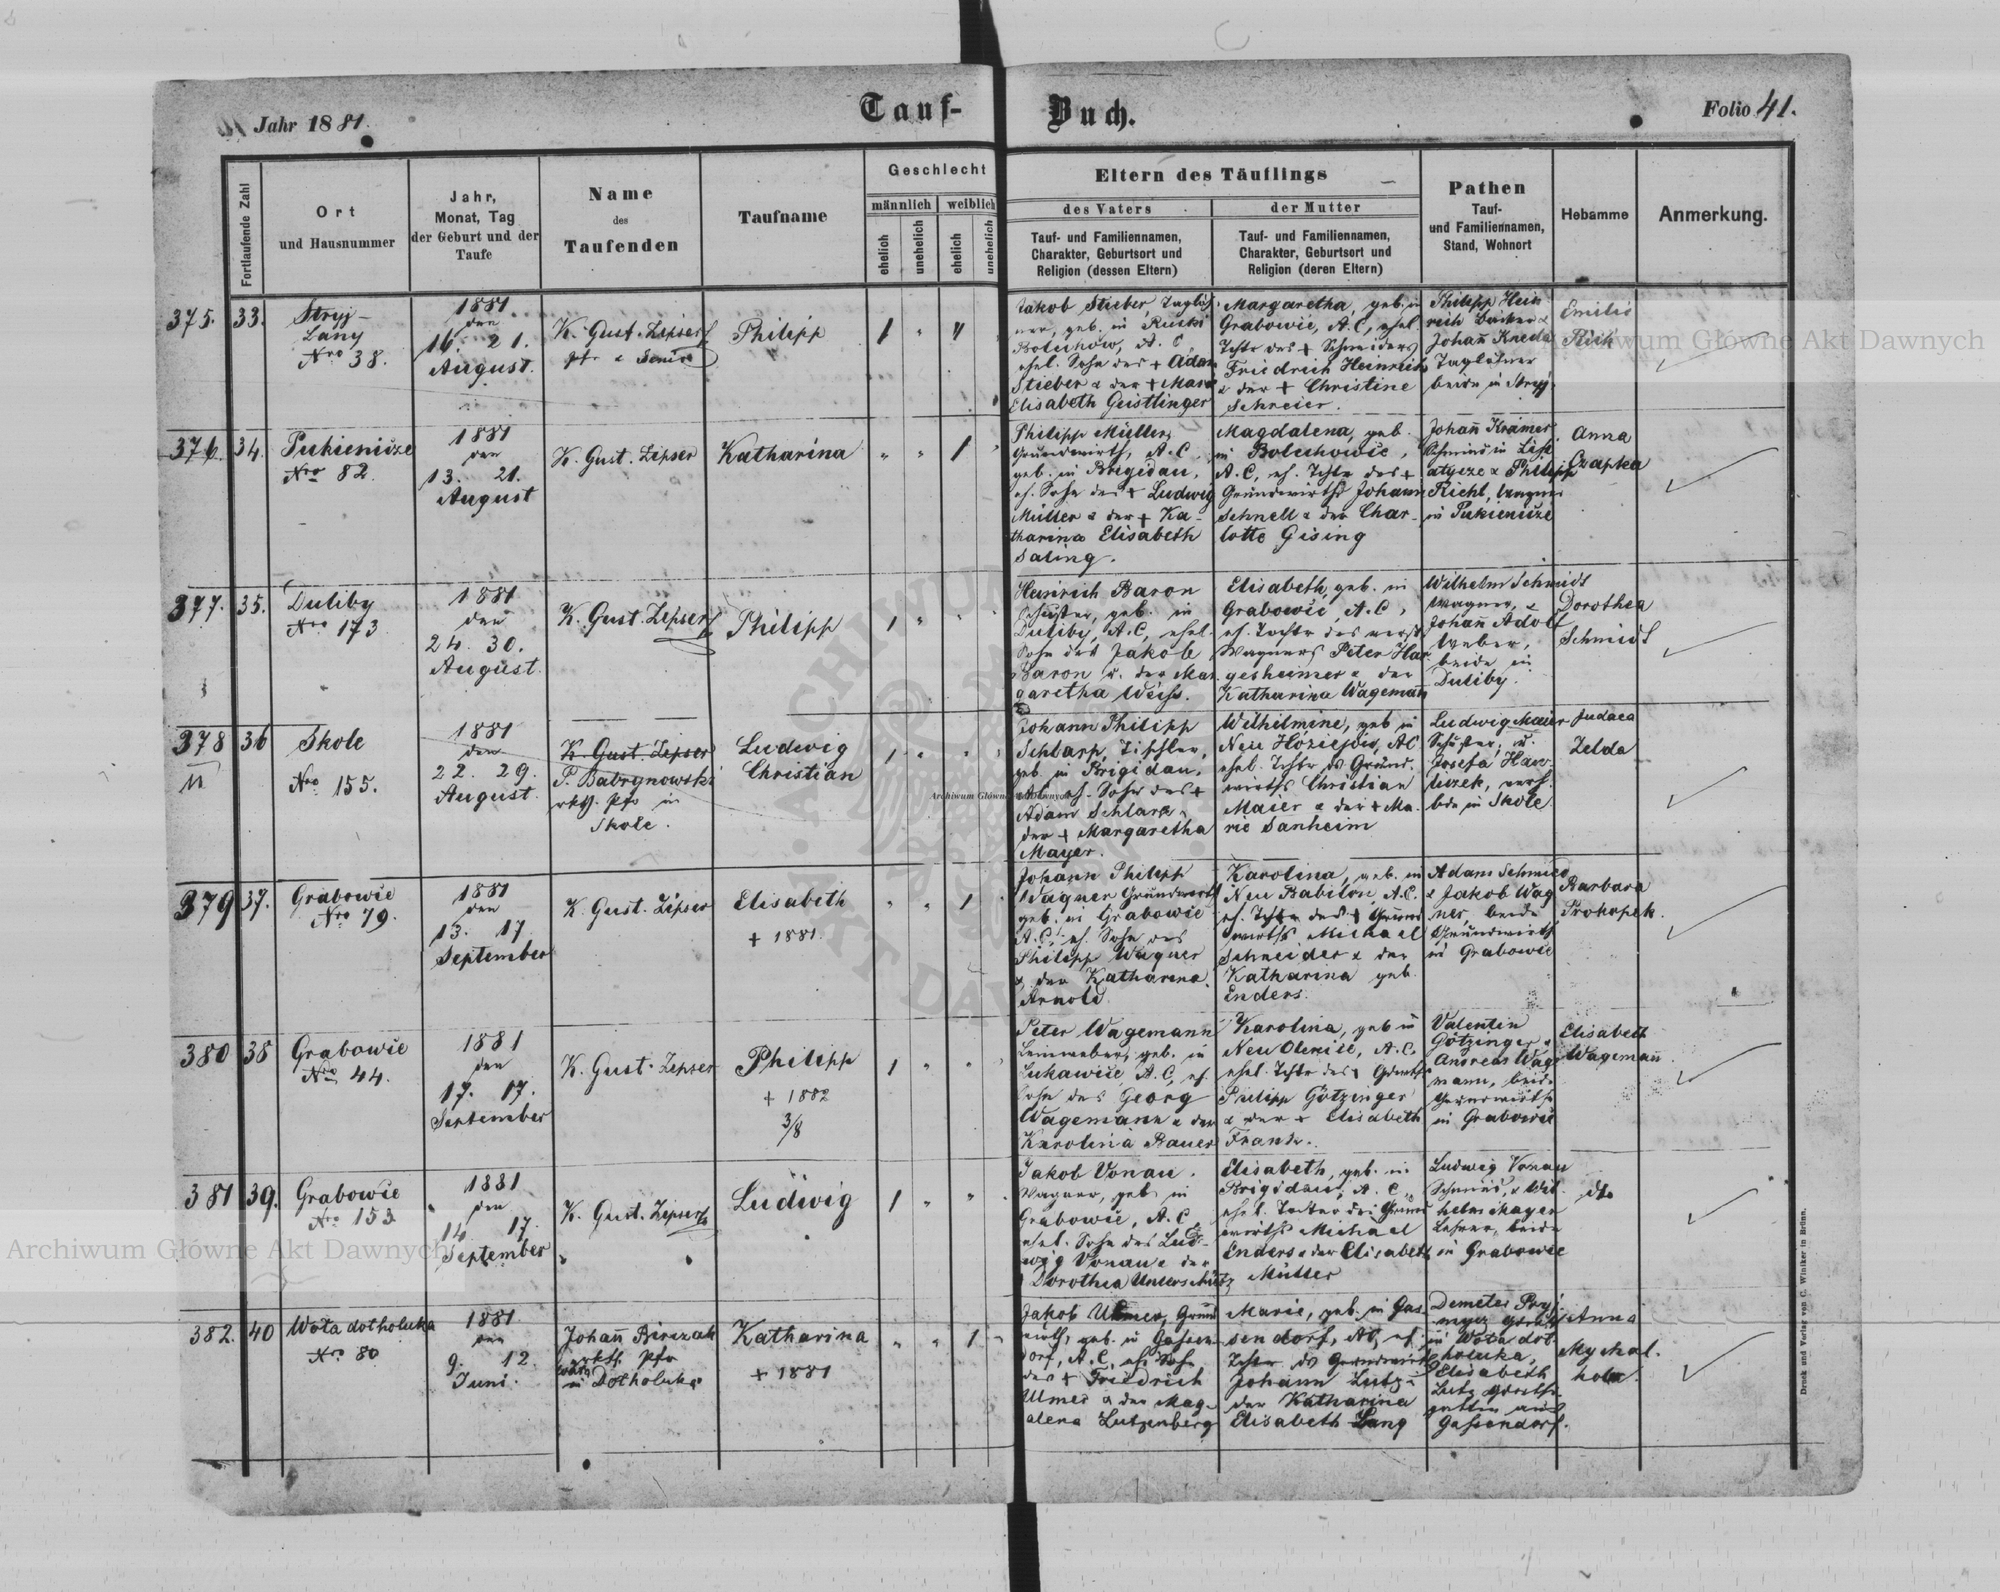 Tauf- Buch.
Jahr 1881.
Folio 41.
Fortlaufende Zahl
Ort
und Hausnummer
Jahr,
Monat, Tag
der Geburt und der
Taufe
Name
des
Taufenden
Taufname
Geschlecht
männlich
weiblich
ehelich
unehelich
ehelich
unehelich
Eltern des Täuflings
des Vaters
der Mutter
Tauf- und Familiennamen,
Charakter, Geburtsort und
Religion (dessen Eltern)
Tauf- und Familiennamen,
Charakter, Geburtsort und
Religion (deren Eltern)
Pathen
Tauf-
und Familiennamen,
Stand, Wohnort
Hebamme
Anmerkung.
375. 33.
Stryj-
Lany
Nro 38.
1881
den
16. 21.
August.
K. Gust. Zipser
Philipp
1
Jakob Stieber, Taglöh-
ner, geb. in Ruski
Bolechow, A. C.,
ehel. Sohn des + Adam
Stieber & der + Maria
Elisabeth Geistlinger
Margaretha, geb. in
Grabowie, A. C., ehel.
Tchtr des + Schneiders
Friedrich Heinrich
& der + Christine
Schreier.
Philipp Hein
rich Bäcker &
Johañ Kneda
Taglöhner
beide in Stryj.
Emilie
376. 34.
Pukienicze
Nro 82.
1881
den
13. 21.
August
K. Gust. Zipser
Katharina
1
Philipp Müller,
Grundwirth, A. C.,
geb. in Brigidau,
eh. Sohn des + Ludwig
Müller & der + Ka-
tharina Elisabeth
Saling.
Magdalena, geb.
in Bolechowie,
A. C., eh. Tchtr des +
Grundwirths Johann
Schnell & der Char-
lotte Gising
Johañ Kramer,
Schmied in
& Philipp
Richl,
in Pukienicze
Anna
Czapka
377. 35.
Duliby
Nro 173
1881
den
24. 30.
August.
K. Gust. Zipser
Philipp
1
Heinrich Baron
Schuster, geb. in
Duliby, A. C., ehel.
Sohn des Jakob
Baron u. der Mar
garetha Weiss.
Elisabeth, geb. in
Grabowie, A. C.,
eh. Tochtr des verst.
Wagners Peter Har
gesheimer & der
Katharina Wagemañ
Wilhelm Schmidt
Wagner, &
Johañ Adolf
Weber,
beide in
Duliby.
Dorothea
Schmidt
378 36
Skole
Nro 155.
1881
den
22. 29.
August.
K. Gust. Zipser
P. Babrynowski
rkth. Pfr in
Skole.
Ludwig
Christian
1
Johann Philipp
Schlarp, Tischler,
geb. in Brigidau,
AC, eh. Sohn des +
Adam Schlarp &
der + Margaretha
Mayer.
Wilhelmine, geb in
Neu Hoziejów, AC
ehel. Tchtr ds Grund-
wirths Christian
Maier & der + Ma-
rie Sanheim
Ludwig Maier
Schuster, u.
Josefa Haw-
liczek,
bde in Skole.
Judaea
Zelda
379 37.
Grabowie
Nro 79.
1881
den
13. 17.
September
K. Gust. Zipser
Elisabeth
+ 1881.
1
Johann Philipp
Wagner Grundwirth
geb. in Grabowie
A. C., eh. Sohn des
Philipp Wagner
& der Katharina
Arnold
Karolina, geb. in
Neu Babilon, A. C.
eh. Tchtr des + Grund
wirths Michael
Schneider & der
Katharina geb.
Enders.
Adam Schmied
& Jakob Wag
ner, beide
Grundwirth
in Grabowie
Barbara
Prokopek.
380 38
Grabowie
Nro 44.
1881
den
17. 17.
September
K. Gust. Zipser
Philipp
+ 1882
3/8
1
Peter Wagemann
Leinweber, geb. in
Lukawice A. C., eh.
Sohn des Georg
Wagemann & der
Karolina Bauer
Karolina, geb in
Neu Olexice, A. C.,
ehel. Tchtr des + Grdwths
Philipp Götzinger
& der + Elisabeth
Frank.
Valentin
Götzinger &
Andreas Wage
mann, beide
Grundwirths
in Grabowie
Elisabeth
Wagemañ
381 39.
Grabowie
Nro 153
1881
den
14. 17.
September
K. Gust. Zipser
Ludwig
1
Jakob Vonau,
Wagner, geb in
Grabowie, A. C.,
ehel. Sohn des Lud-
wig Vonau & der
Dorothea Unterschütz
Elisabeth, geb. in
Brigidau, A. C.,
ehel. Tochter des Grund
wirths Michael
Enders & der Elisabeth
Müller
Ludwig Vonau
Schmied, & Wil-
helm Mayer
Lehrer, beide
in Grabowie
dto
382. 40
Wola dolholuka
Nro 80
1881
den
9. 12.
Juni.
Johañ Birczak
rkth. Pfr
in Dolholuka
Katharina
+ 1881
1
Jakob Ulmer, Grund
wirth, geb. in Gassen
dorf, A. C., eh. Sohn
des + Friedrich
Ulmer & der Mag-
alena Lutzenberg
Marie, geb. in Gas-
sendorf, AC, eh.
Tchtr ds Grundwirth
Johann Lutz &
der Katharina
Elisabeth Lang
Demeter
in Wola dol-
holuka,
Elisabeth
Lutz
gattin aus
Gassendorf.
Anna
Mychal.
Druck und Verlag von C. Winiker in Brünn.
Archiwum Główne Akt Dawnych
Archiwum Główne Akt Dawnych
Archiwum Główne Akt Dawnych
ARCHIWUM
AKT DAWNYCH